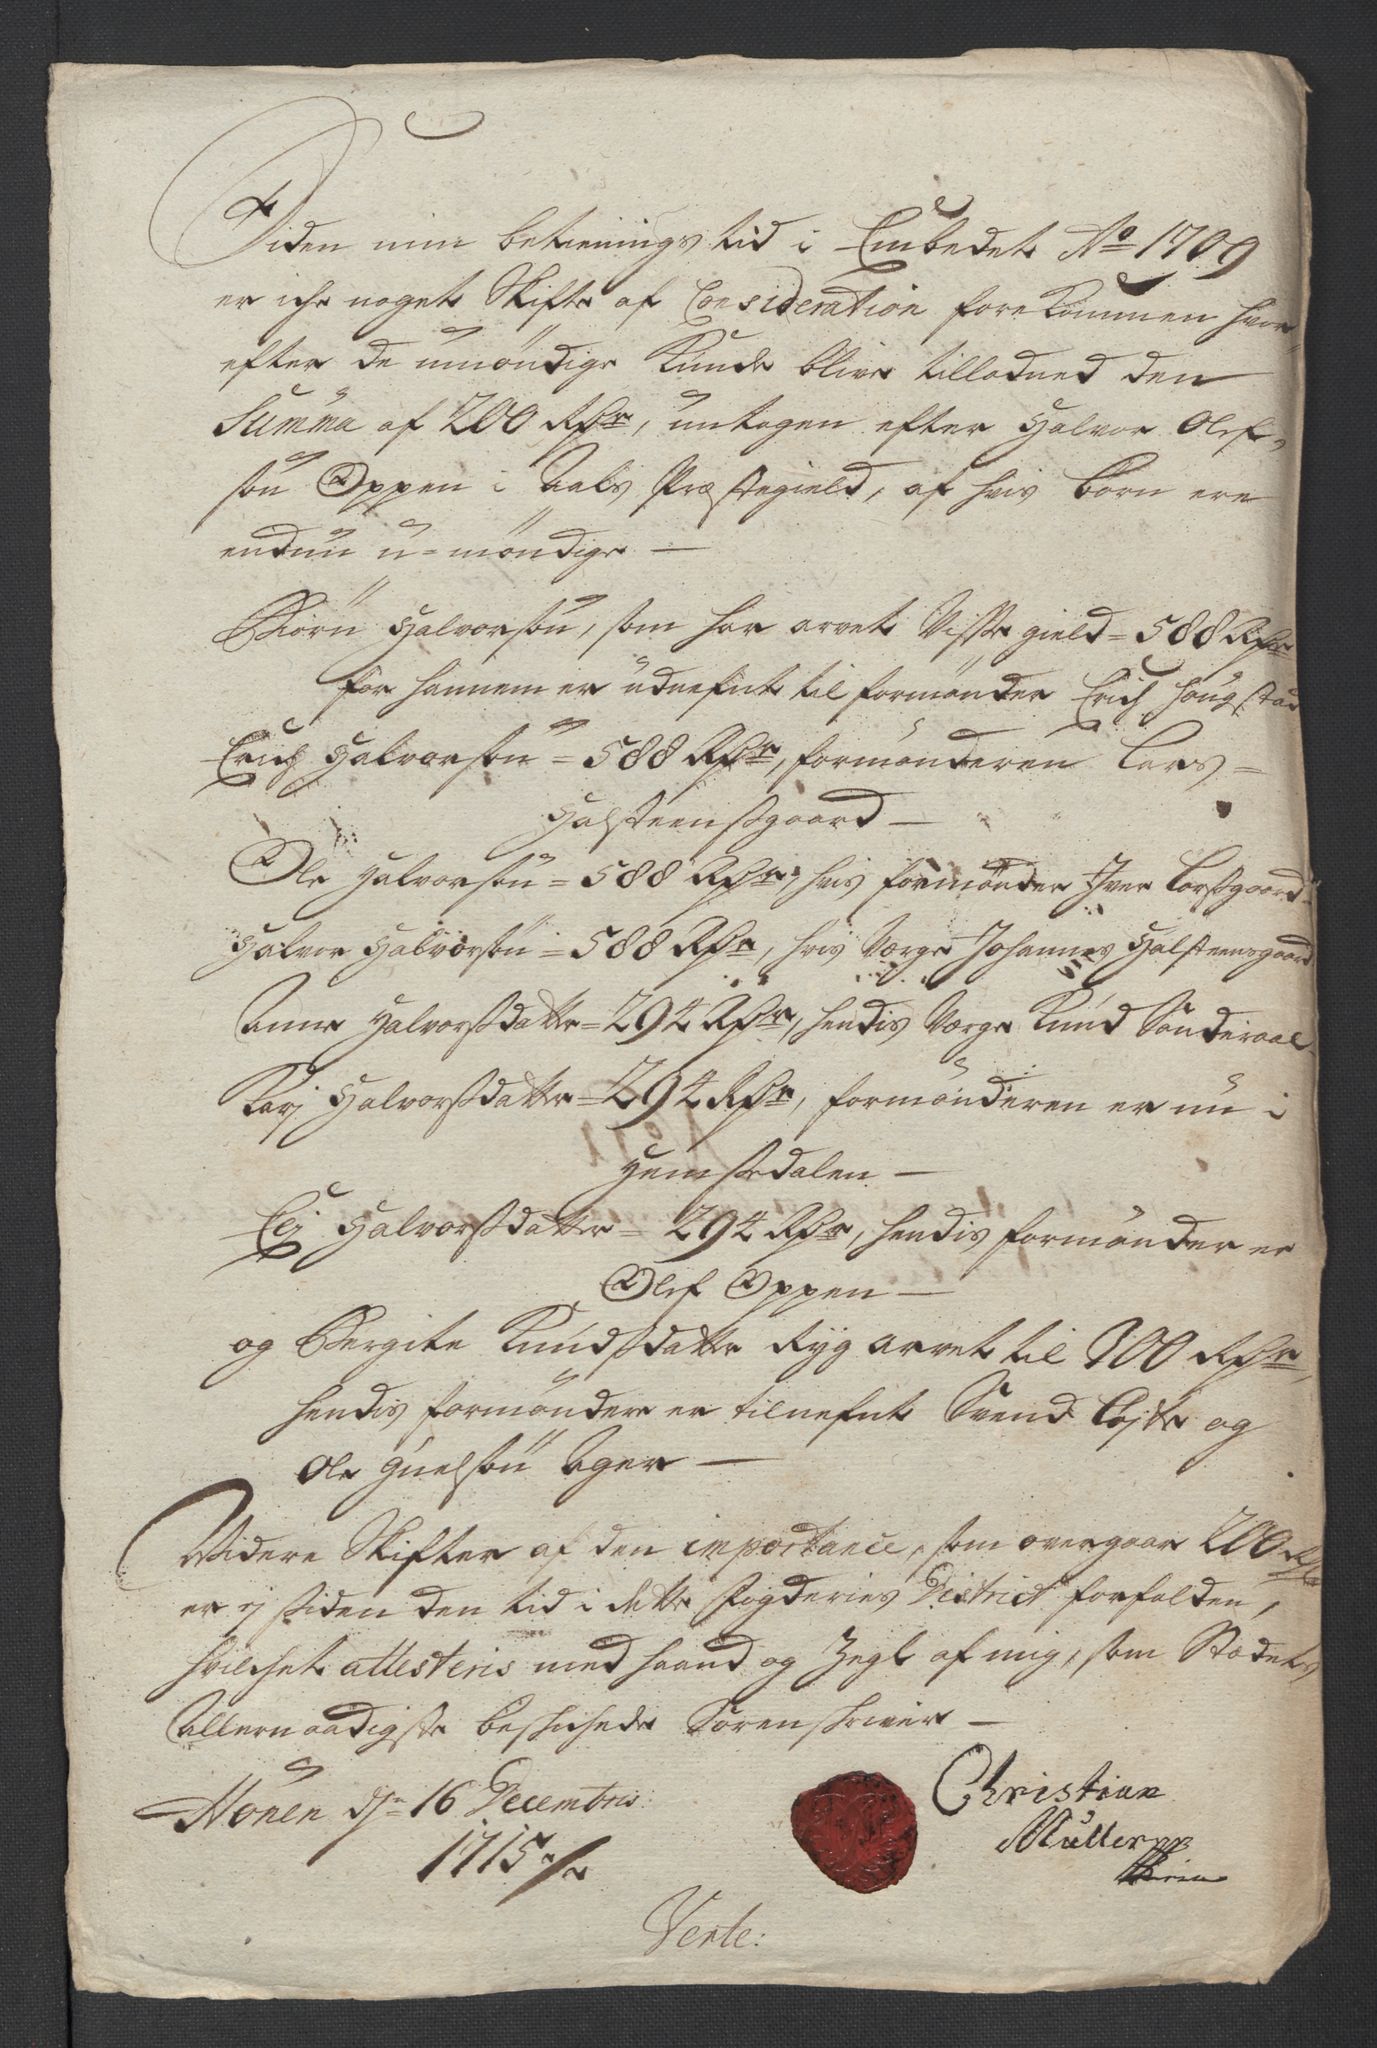 Siden min betienings tid i Embedet Ao 1709
er iche noget Skifte af Consideration forekommen hvor
efter de umöndige Kunde blive tillodned den
Summa af 200 Rdr, untagen efter Halvor Olef-
sön Oppen i Aals Præstegield, af hvis börn ere
endnu u-möndige —
Biörn Halvorsön, som har arvet Visse gield = 588 Rdr
for hannem er udnefnt til formönder Erich Hougstad
Erich Halvorsön = 588 Rdr, formönderen Lars =
Halsteensgaard —
Ole Halvorsön = 588 Rdr, hvis formönder Iver Larsgaard
Halvor Halvorsön = 588 Rdr, hvis Værge Johannes Halsteensgaard
Anne Halvorsdatter = 294 Rdr, hendis Værge Knud Sönderaal
Karj Halvorsdatter = 294 Rdr, formönderen er nu i
Hemsedalen —
Halvorsdatter = 294 Rdr, hendis formönder er
Olef Oppen —
og Bergite Knudsdatter Ryg arvet til 900 Rdr,
hendis formöndere er tilnefnt Svend og
Ole Ager —
Widere Skifter af den importance, som overgaar 200 Rdr
er ej siden den tid i dette fogderies District forfalden,
hvilchet attesteris med haand og Zegl af mig, som Stædets
Allernaadigste beschichede Sorenschriver —
Hönen dn 16 Decembris:
1715 //
Christian
Müller
Verte: